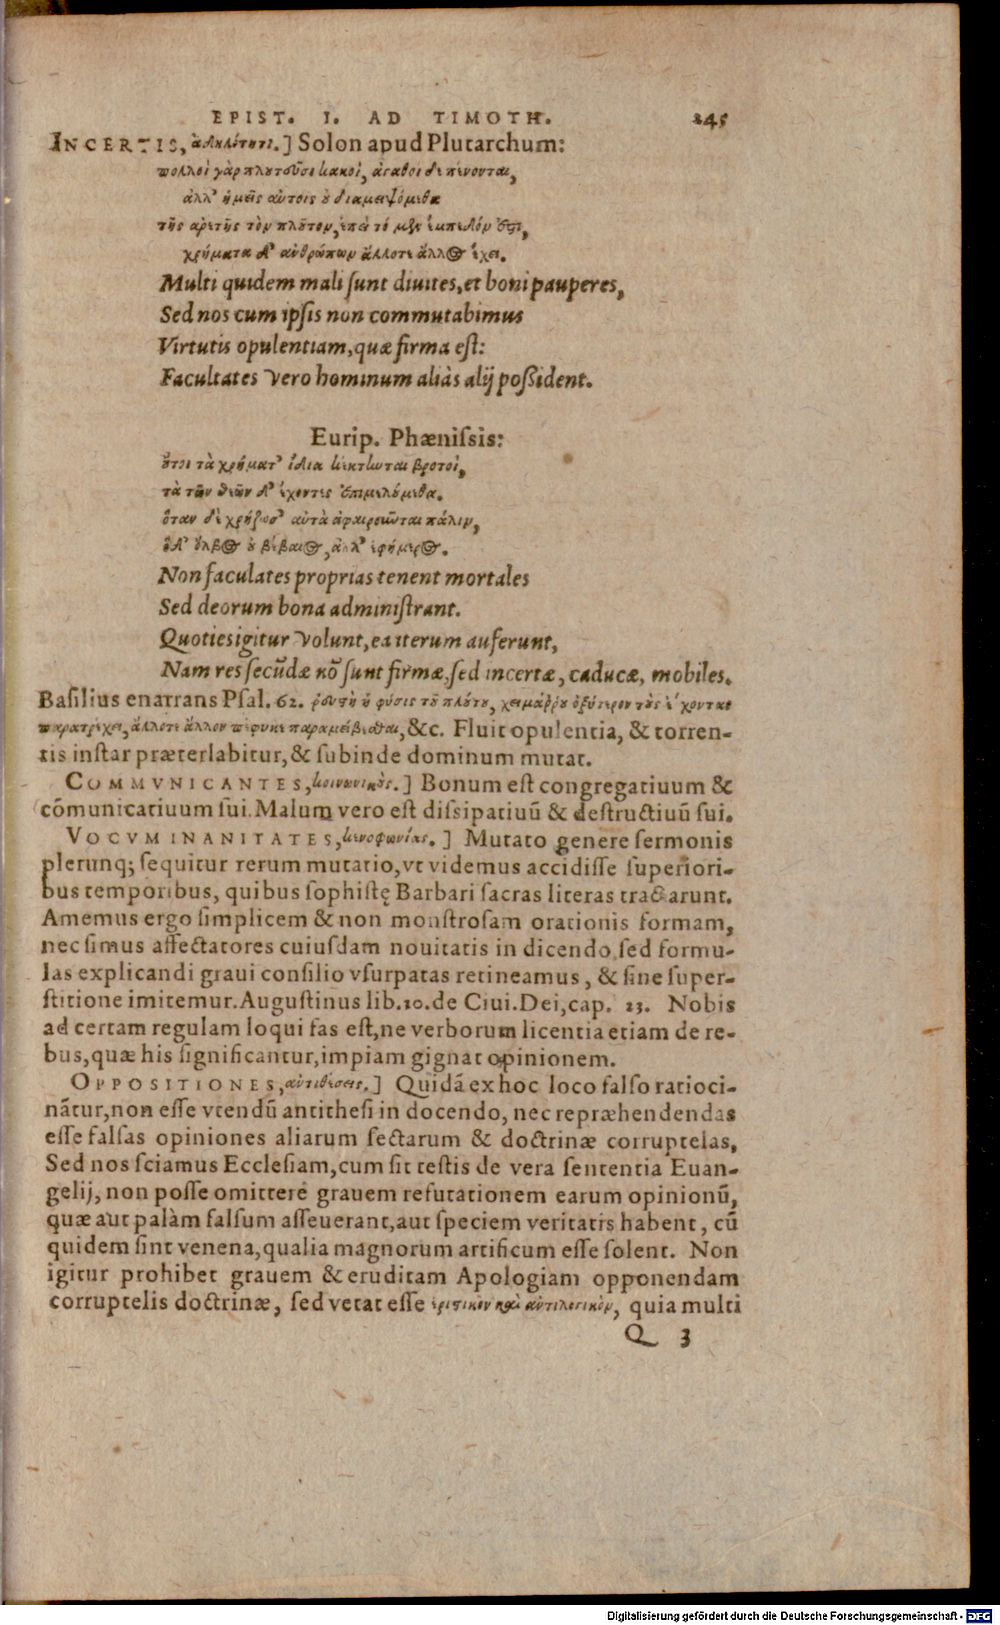 EPIST. I. AD TIMOTH. 245
INCERTIS, ἀδηλότητι.] Solon apud Plutarchum:
πολλοὶ γὰρ πλουτοῦσι κακοὶ, ἀγαθοὶ δὲ πένονται,
ἀλλ' ἡμεῖς αὐτοῖς ȣ διαμειψόμεθα
τῆς ἀρετῆς τὸν πλοῦτον, ἐπεὶ τὸ μὲν ἔμπεδόν ἐστι,
χρήματα δ' ἀνθρώπων ἄλλοτε ἄλλος ἔχει.
Multi quidem mali sunt diuites, et boni pauperes,
Sed nos cum ipsis non commutabimus
Virtutis opulentiam, quæ firma est:
Facultates vero hominum aliàs alij possident.
Eurip. Phænissis:
οὔτοι τὰ χρήματ' ἴδια κέκτηνται βροτοὶ,
τὰ τῶν θεῶν δ' ἔχοντες ἐπιμελούμεθα.
ὅταν δὲ χρῄζωσ' αὐτὰ ἀφαιροῦνται πάλιν,
ὁ δ' ὄλβος ȣ βέβαιος, ἀλλ' ἐφήμερος.
Non faculates proprias tenent mortales
Sed deorum bona administrant.
Quoties igitur volunt, ea iterum auferunt,
Nam res secūdæ nō sunt firmæ, sed incertæ, caducæ, mobiles.
Basilius enarrans Psal. 62. ῥευστὴ ἡ φύσις τοῦ πλούτου, χειμάῤῥου ὀξύτερον τοὺς ἔχοντας
παρατρέχει, ἄλλοτε ἄλλον πέφυκε παραμείβεσθαι, &c. Fluit opulentia, & torren-
tis instar præterlabitur, & subinde dominum mutat.
COMMVNICANTES, κοινωνικοὺς.] Bonum est congregatiuum &
cōmunicatiuum sui. Malum vero est dissipatiuū & destructiuū sui.
VOCVM INANITATES, κενοφωνίας.] Mutato genere sermonis
plerunq; sequitur rerum mutatio, vt videmus accidisse superiori-
bus temporibus, quibus sophistę Barbari sacras literas tractarunt.
Amemus ergo simplicem & non monstrosam orationis formam,
nec simus affectatores cuiusdam nouitatis in dicendo, sed formu-
las explicandi graui consilio vsurpatas retineamus, & sine super-
stitione imitemur. Augustinus lib. 10. de Ciui. Dei, cap. 23. Nobis
ad certam regulam loqui fas est, ne verborum licentia etiam de re-
bus, quæ his significantur, impiam gignat opinionem.
OPPOSITIONES, ἀντιθέσεις.] Quidā ex hoc loco falso ratioci-
nātur, non esse vtendū antithesi in docendo, nec repræhendendas
esse falsas opiniones aliarum sectarum & doctrinæ corruptelas,
Sed nos sciamus Ecclesiam, cum sit testis de vera sententia Euan-
gelij, non posse omittere grauem refutationem earum opinionū,
quæ aut palàm falsum asseuerant, aut speciem veritatis habent, cū
quidem sint venena, qualia magnorum artificum esse solent. Non
igitur prohibet grauem & eruditam Apologiam opponendam
corruptelis doctrinæ, sed vetat esse ἐριστικὸν καὶ ἀντιλογικὸν, quia multi
Q 3
Digitalisierung gefördert durch die Deutsche Forschungsgemeinschaft - DFG